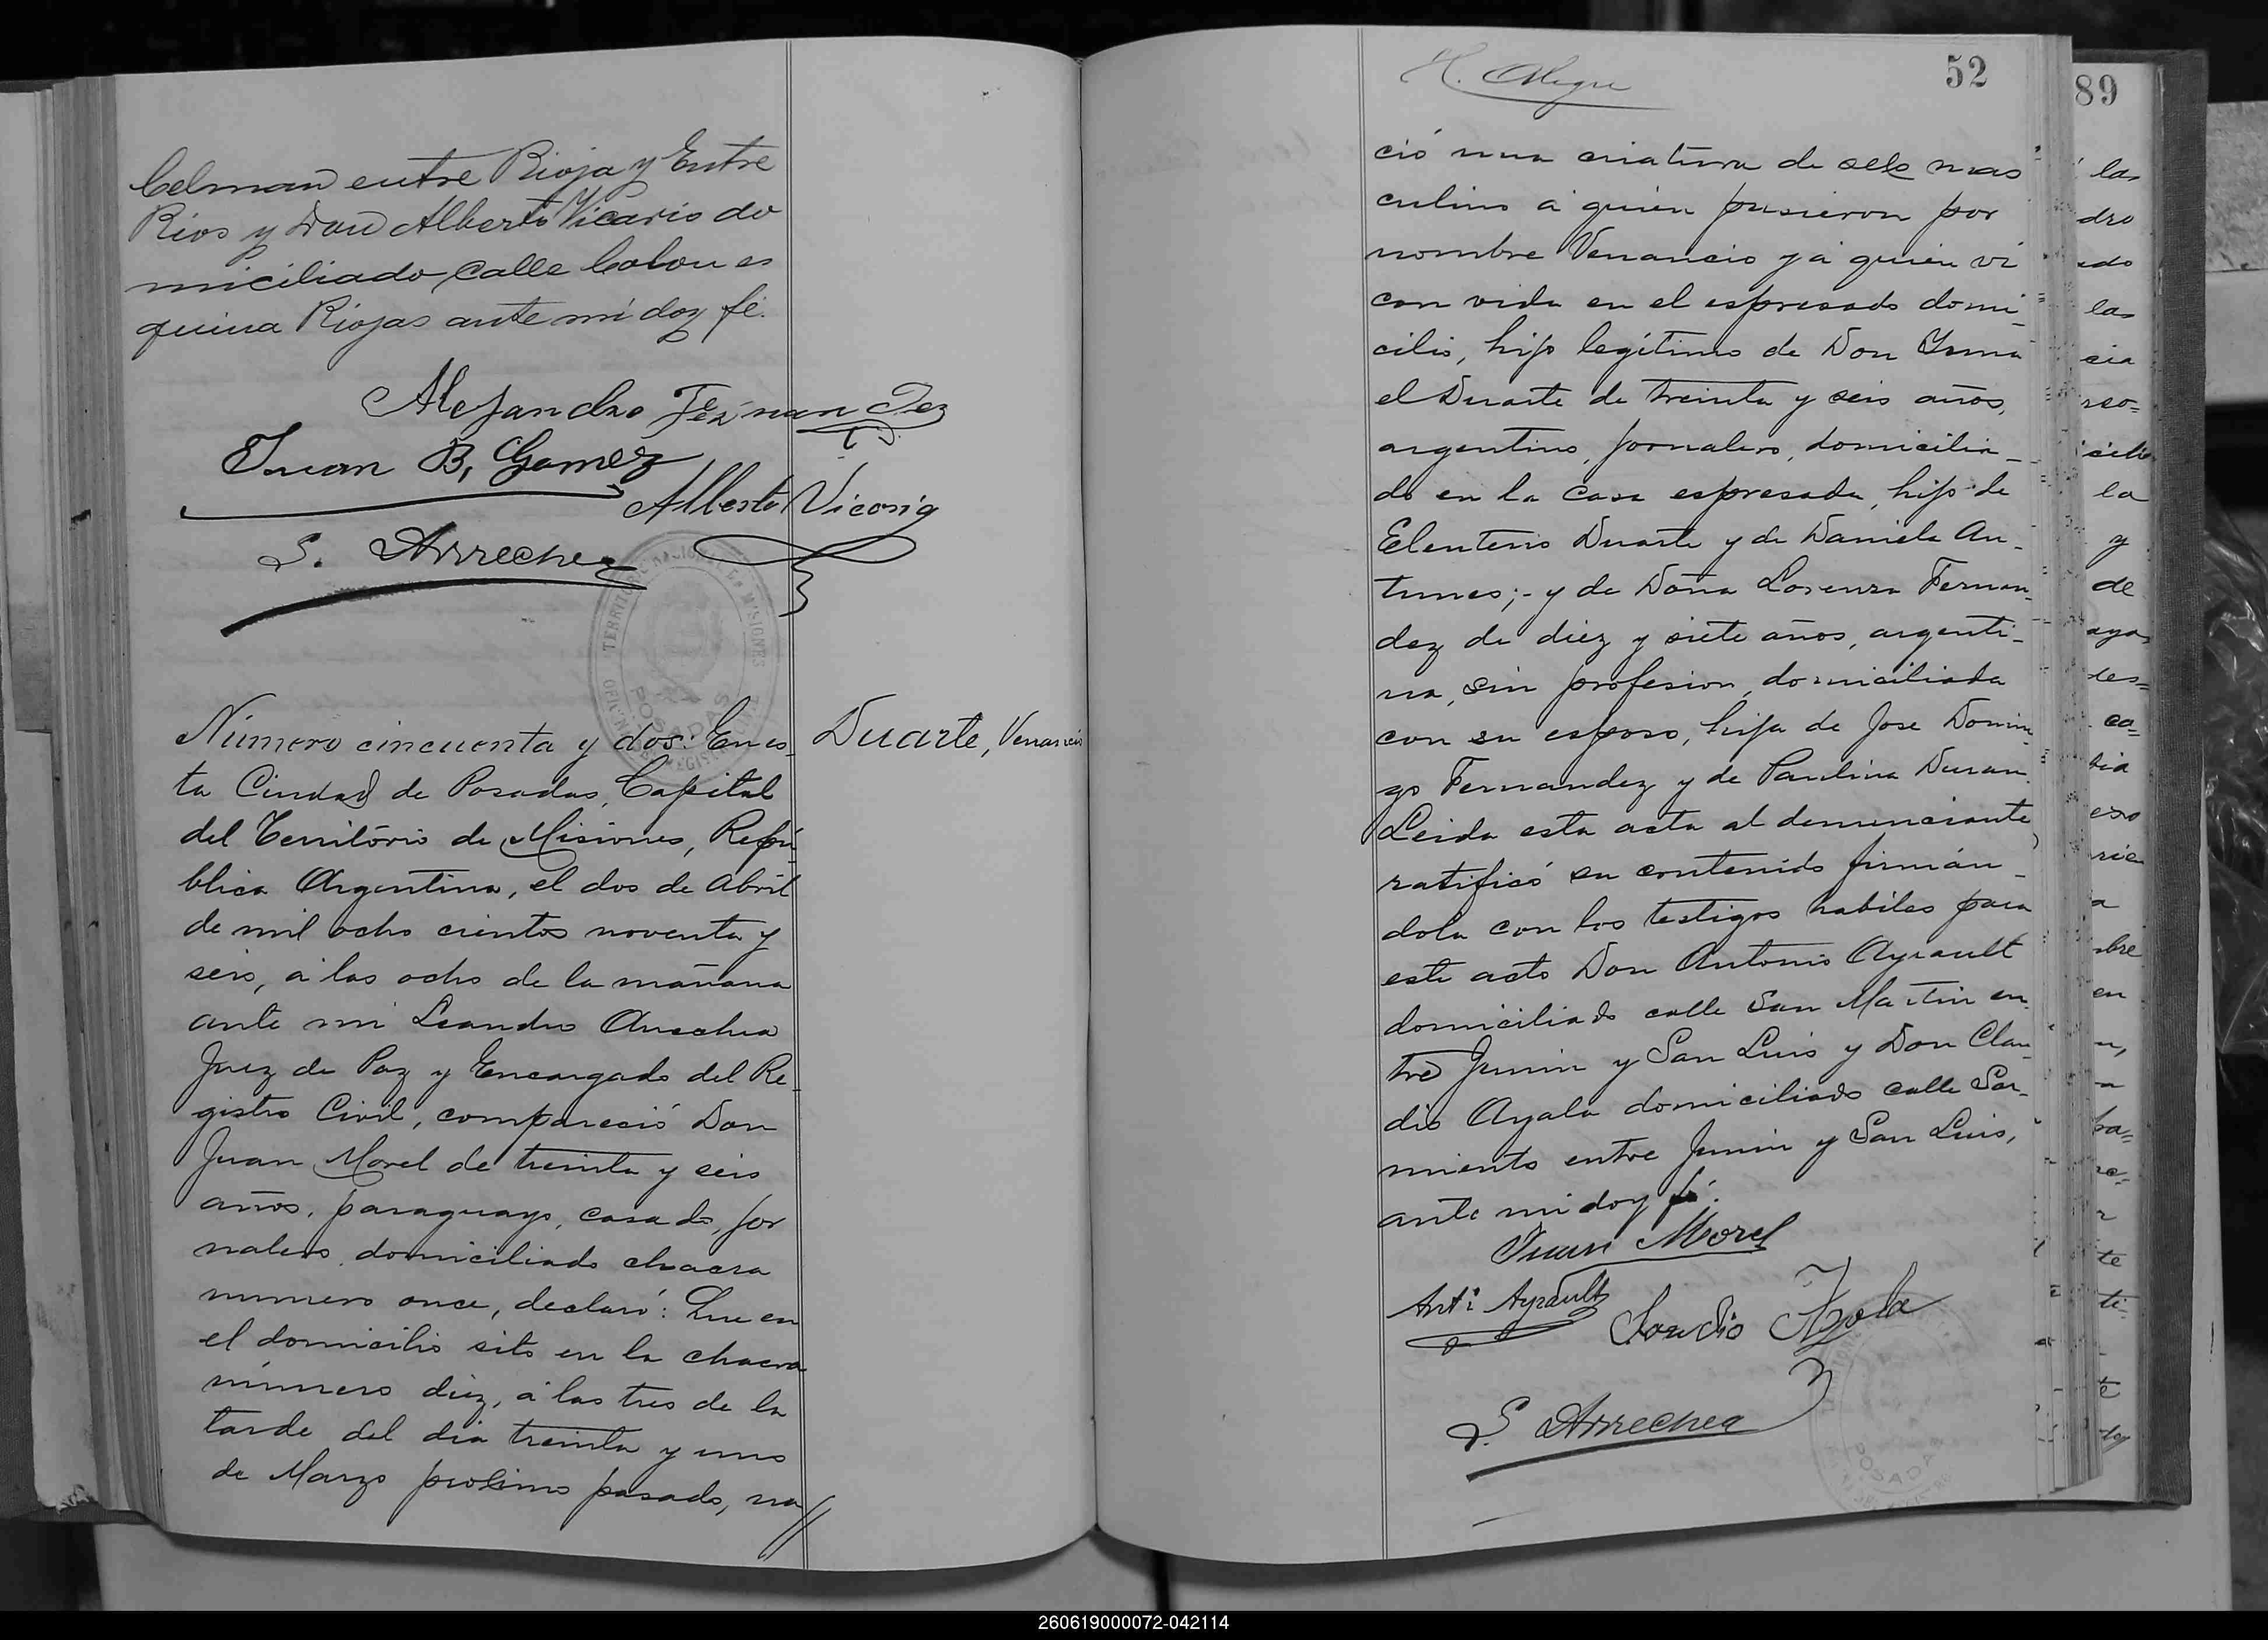 Celman entre Rioja y Entre
Rios y Don Alberto Vicario do
miciliado calle Colon es
quina Riojas ante mi doy fé.
Alejandro Fernandez
Juan B. Gomez
Alberto Vicario
L. Arrechea
TERRITORIO NACIONAL DE MISIONES
POSADAS
Número cincuenta y dos: En es-
Duarte, Venancio
ta Ciudad de Posadas, Capital
del Território de Misiones, Repú-
blica Argentina, el dos de Abril
de mil ocho cientos noventa y
seis, á las ocho de la mañana
ante mi Leandro Arrechea
Juez de Paz y Encargado del Re-
gistro Civil, compareció Don
Juan Morel de treinta y seis
años, paraguayo, casado, jor
nalero, domiciliado chacra
numero once, declaró: Que en
el domicilio sito en la chacra
número diez, á las tres de la
tarde del dia treinta y uno
de Marzo proximo pasado, na//
H. Alegre
52
ció una criatura de sexo mas
culino á quien pusieron por
nombre Venancio y á quien vi
con vida en el espresado domi-
cilio, hijo legítimo de Don Isma
el Duarte de treinta y seis años,
argentino, jornalero, domicilia-
do en la casa espresada, hijo de
Eleuterio Duarte y de Daniela An-
tunes;- y de Doña Lorenza Fernan-
dez de diez y siete años, argenti-
na, sin profesion, domiciliada
con su esposo, hija de Jose Domin-
go Fernandez y de Paulina Duran.
Leida esta acta al denunciante,
ratificó su contenido firmán-
dola con los testigos habiles para
este acto Don Antonio Ayrault
domiciliado calle San Martin en-
tre Junin y San Luis y Don Clau-
dio Ayala domiciliado calle Sar-
miento entre Junin y San Luis,
ante mi doy fé.
Juan Morel
Antº Ayrault
Ayala
L. Arrechea
POSADA
89
la
dro
ado
la
cia
reo=
la
y
de
des=
ca=
eso
a
nbre
en
n,
ba=
te
ti-
te
260619000072-042114